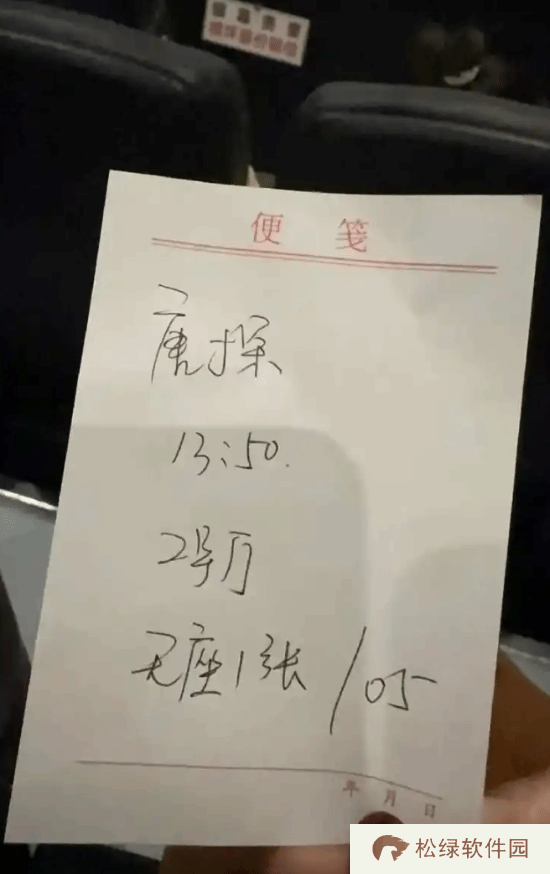 便笺
唐探
13:50.
2号厅
无座1张/05
年月日
松绿软件园